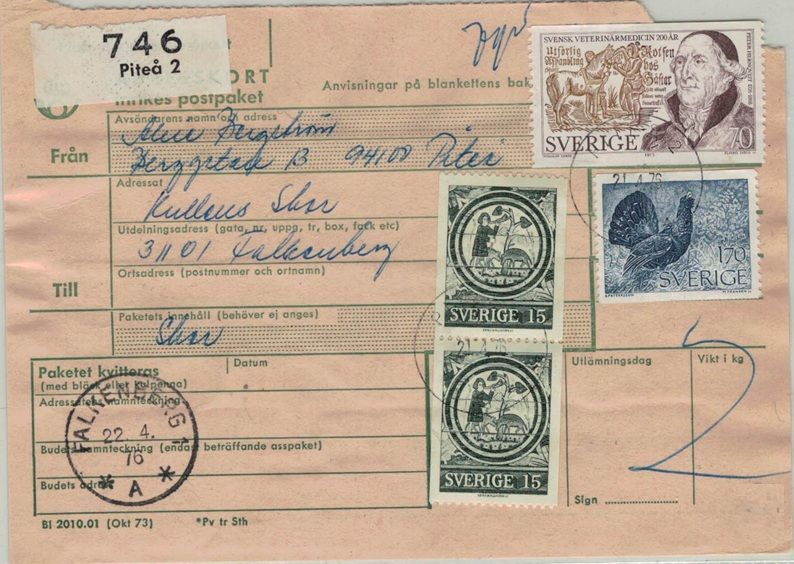 746
Piteå 2
ESKORT
Inrikes postpaket
Anvisningar på blankettens bak
Avsändarens namn och adress
Bergström
Från
Berggatan 13 94100 Piteå
Adressat
Kullens Skor
Utdelningsadress (gata, nr, uppg, tr, box, fack etc)
31101 Falkenberg
Ortsadress (postnummer och ortnamn)
Till
Paketets innehåll (behöver ej anges)
Skor
Paketet kvitteras
(med bläck eller kulpenna)
Datum
Adressatens namnteckning
Budets namnteckning (endast beträffande asspaket)
Budets adress
Bl 2010.01 (Okt 73)
*Pv tr Sth
Utlämningsdag
Vikt i kg
2
Sign
FALKENBERG 1
22. 4.
76
* A *
SVENSK VETERINÄRMEDICIN 200 ÅR
Utförlig
Afhandling
SVERIGE
1975
70
21.4.76
170
SVERIGE
SVERIGE 15
21.4.76
SVERIGE 15